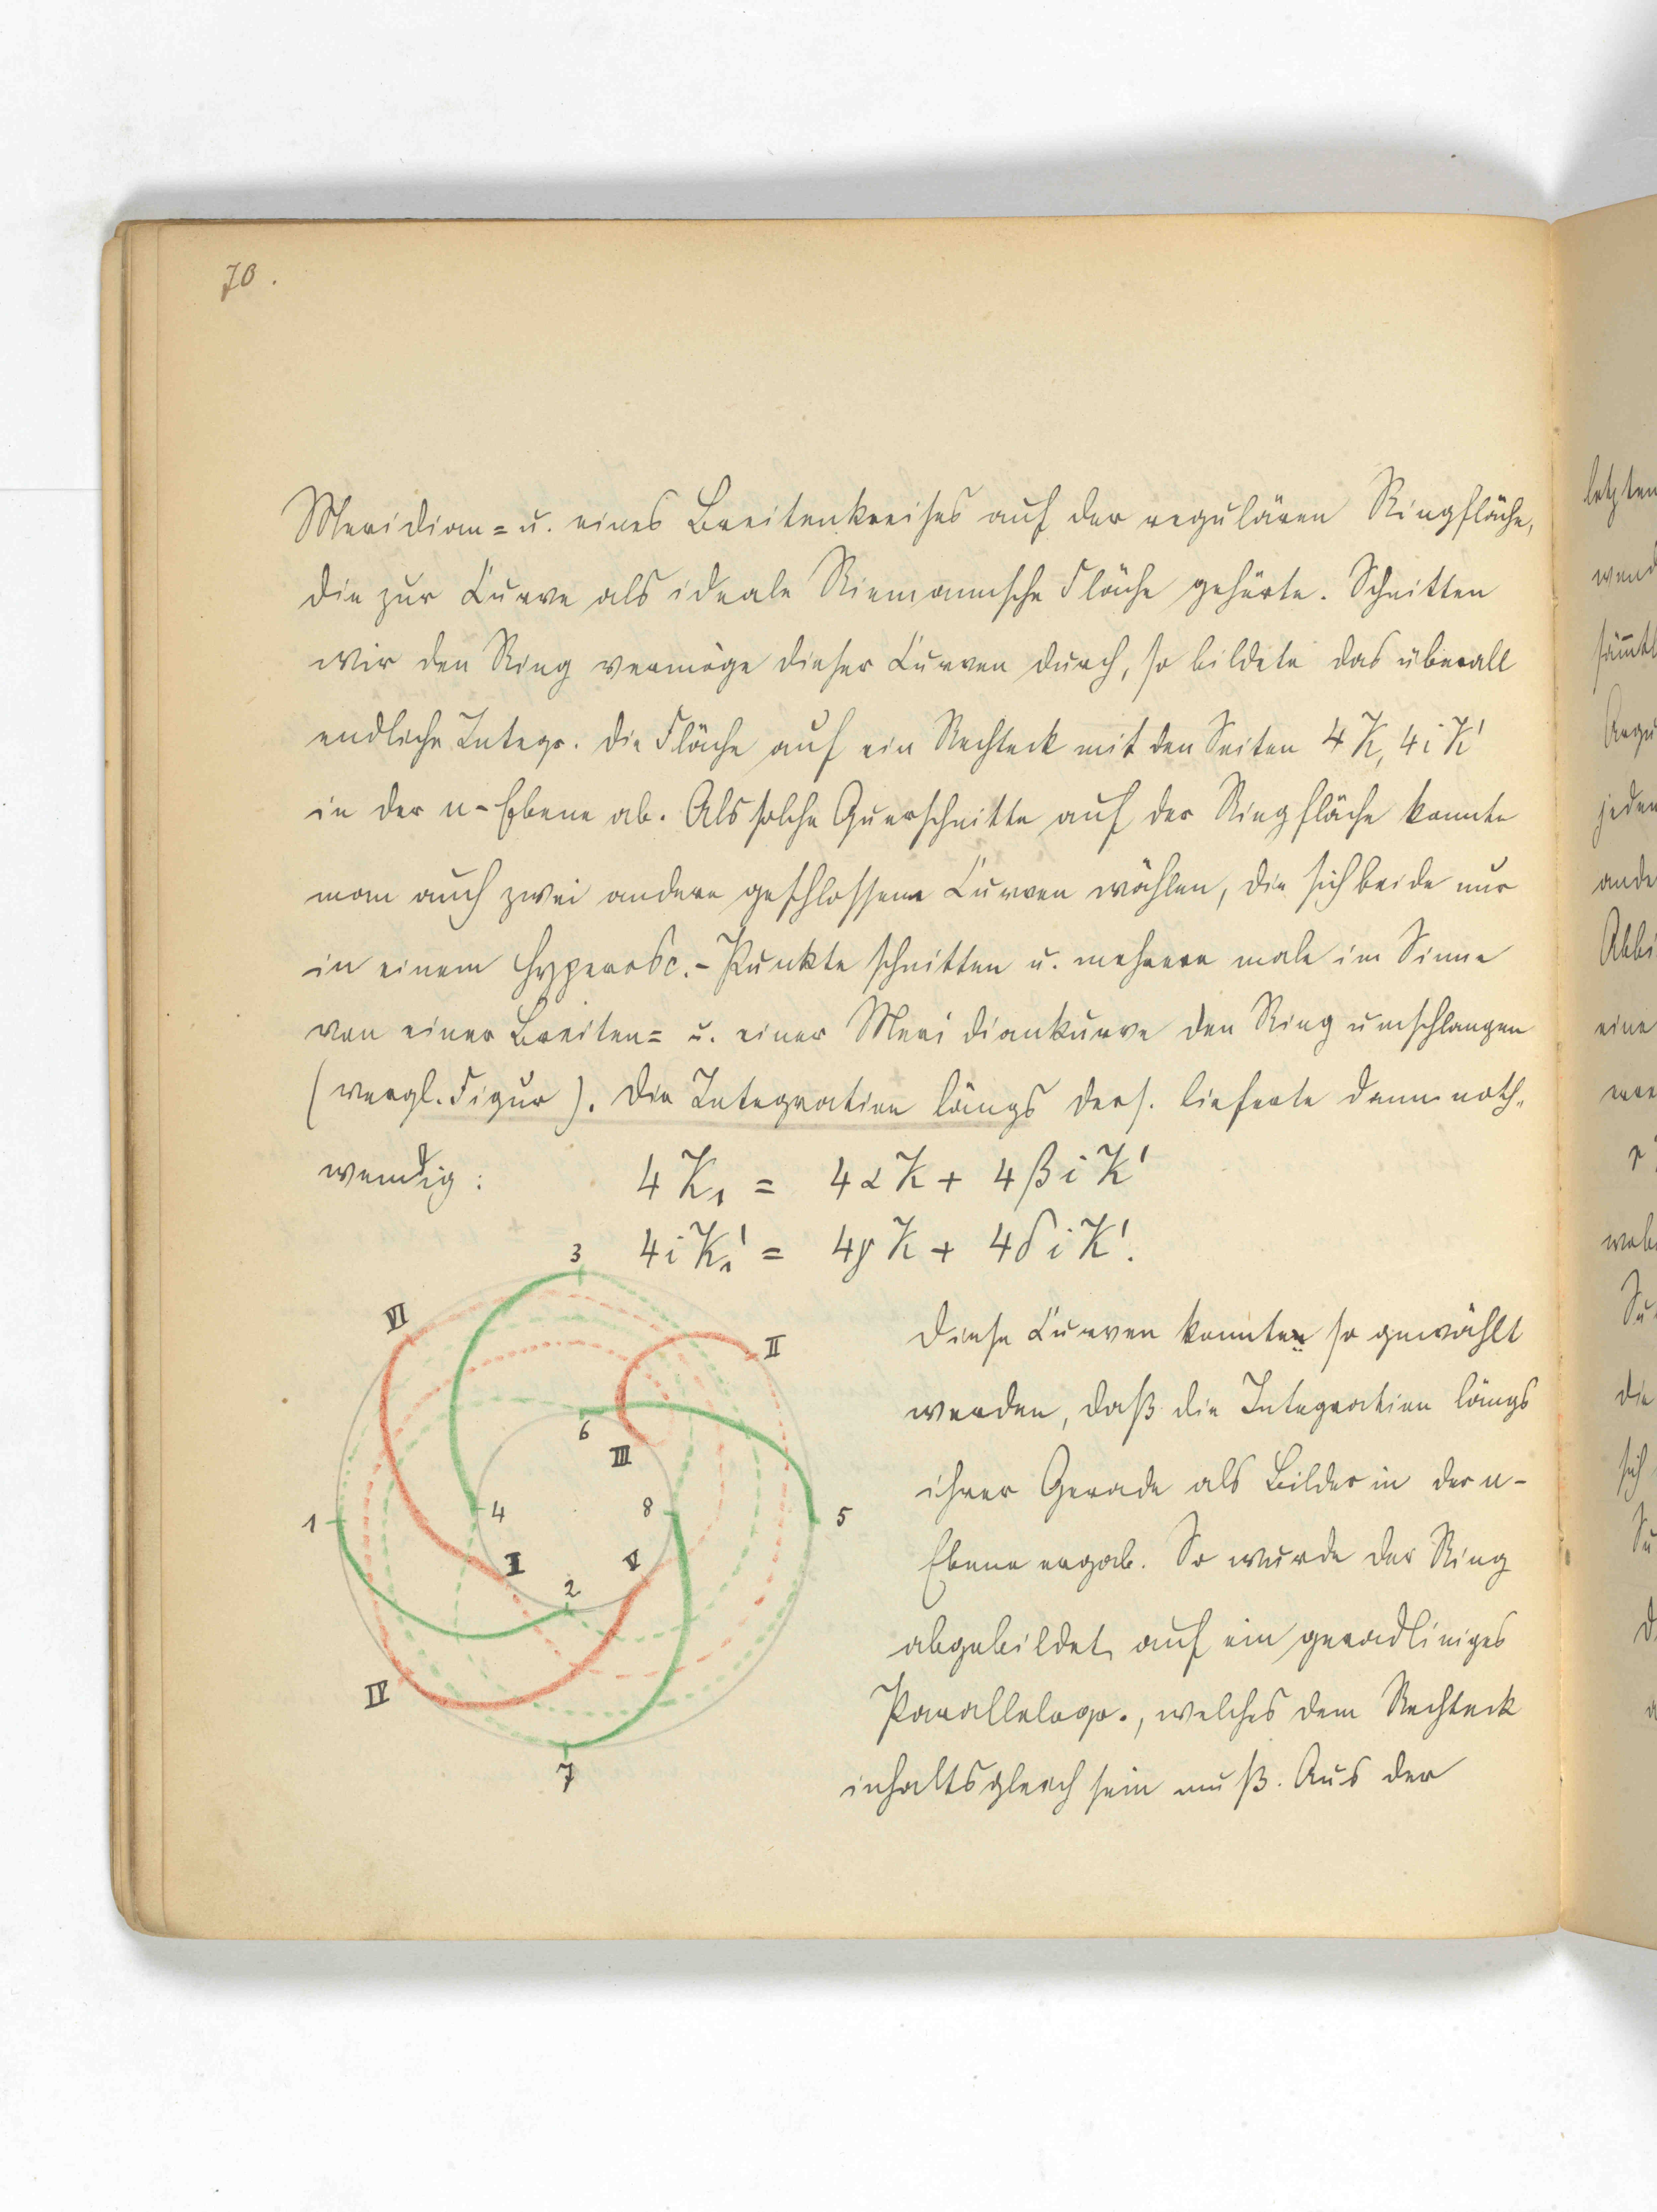 70.
Meridian= u. eines Breitenkreises auf der regulären Ringfläche,
die zur Curve als ideale Riemannsche Fläche gehörte. Schnitten
wir den Ring vermöge dieser Curven durch, so bildete das überall
endliche Integr. die Fläche auf ein Rechteck mit den Seiten 4K, 4iK'
in der u-Ebene ab. Als solche Querschnitte auf der Ringfläche konnte
man auch zwei andere geschlossene Curven wählen, die sich beide nur
in einem Hyperosc.-Punkte schnitten u. mehrere male im Sinne
von einer Breiten= u. einer Meridiankurve den Ring umschlangen
(vergl. Figur). Die Integration längs ders. lieferte dann noth=
wendig: 4K₁ = 4αK + 4βiK'
4iK₁' = 4γK + 4δiK'.
3
VI
II
6
III
1
4
8
5
I
V
2
IV
7
Diese Curven konnten so gewählt
werden, daß die Integration längs
ihrer Gerade als Bilder in der u-
Ebene ergab. So wurde der Ring
abgebildet auf ein geradliniges
Parallelogr., welches dem Rechteck
inhaltsgleich sein muß. Aus der
letzten
wend
sämtl
Argu
jeden
ande
Abbi
eine
die
sich